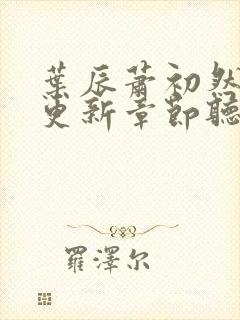 葉辰蕭初然
更新章節聽
羅澤尔